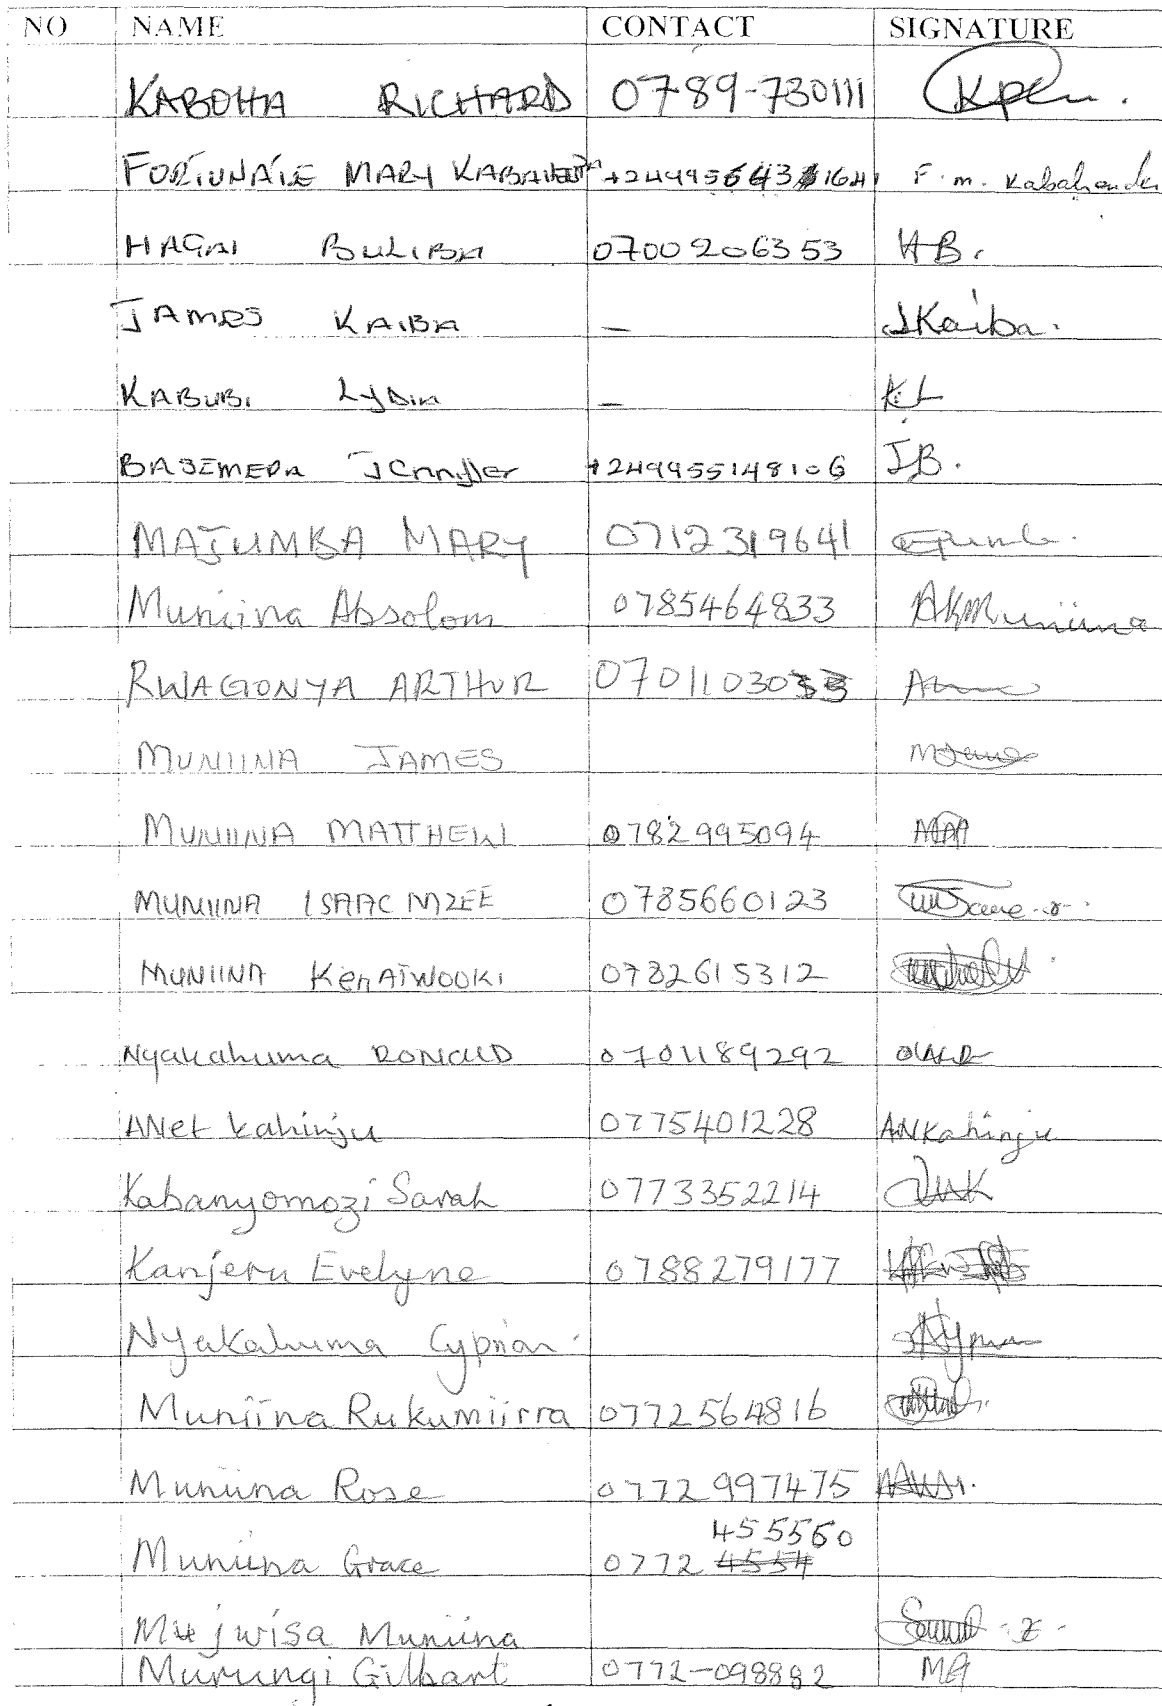 NO NAME CONTACT SIGNATURE
KABOHA RICHARD 0789-730111
FORTUNATE MARY F. m. Kabahenda
HAGAI BULIBA 0700206353 HB.
JAMES KAIBA — JKaiba.
KABUBI Lydia — K.L
BASEMERA Jennifer +249955148106 JB.
MAJUMBA MARY 0712319641
Muniina Absolom 0785464833 AKMuniina
RWAGONYA ARTHUR 0701103033
MUNIINA JAMES
MUNIINA MATTHEW 0782995094
MUNIINA ISAAC MZEE 0785660123
MUNIINA Ken ATWOOKI 0782615312
Nyakahuma RONALD 0701189292
ANet kahinju 0775401228 ANKahinju
Kabanyomozi Sarah 0773352214
Kanjeru Evelyne 0788279177
Nyakahuma Cyprian.
Muniina Rukumiirra 0772564816
Muniina Rose 0772997475
455560
Muniina Grace 0772 4554
Mujwisa Muniina
Murungi Gilbart 0772-098882 MG